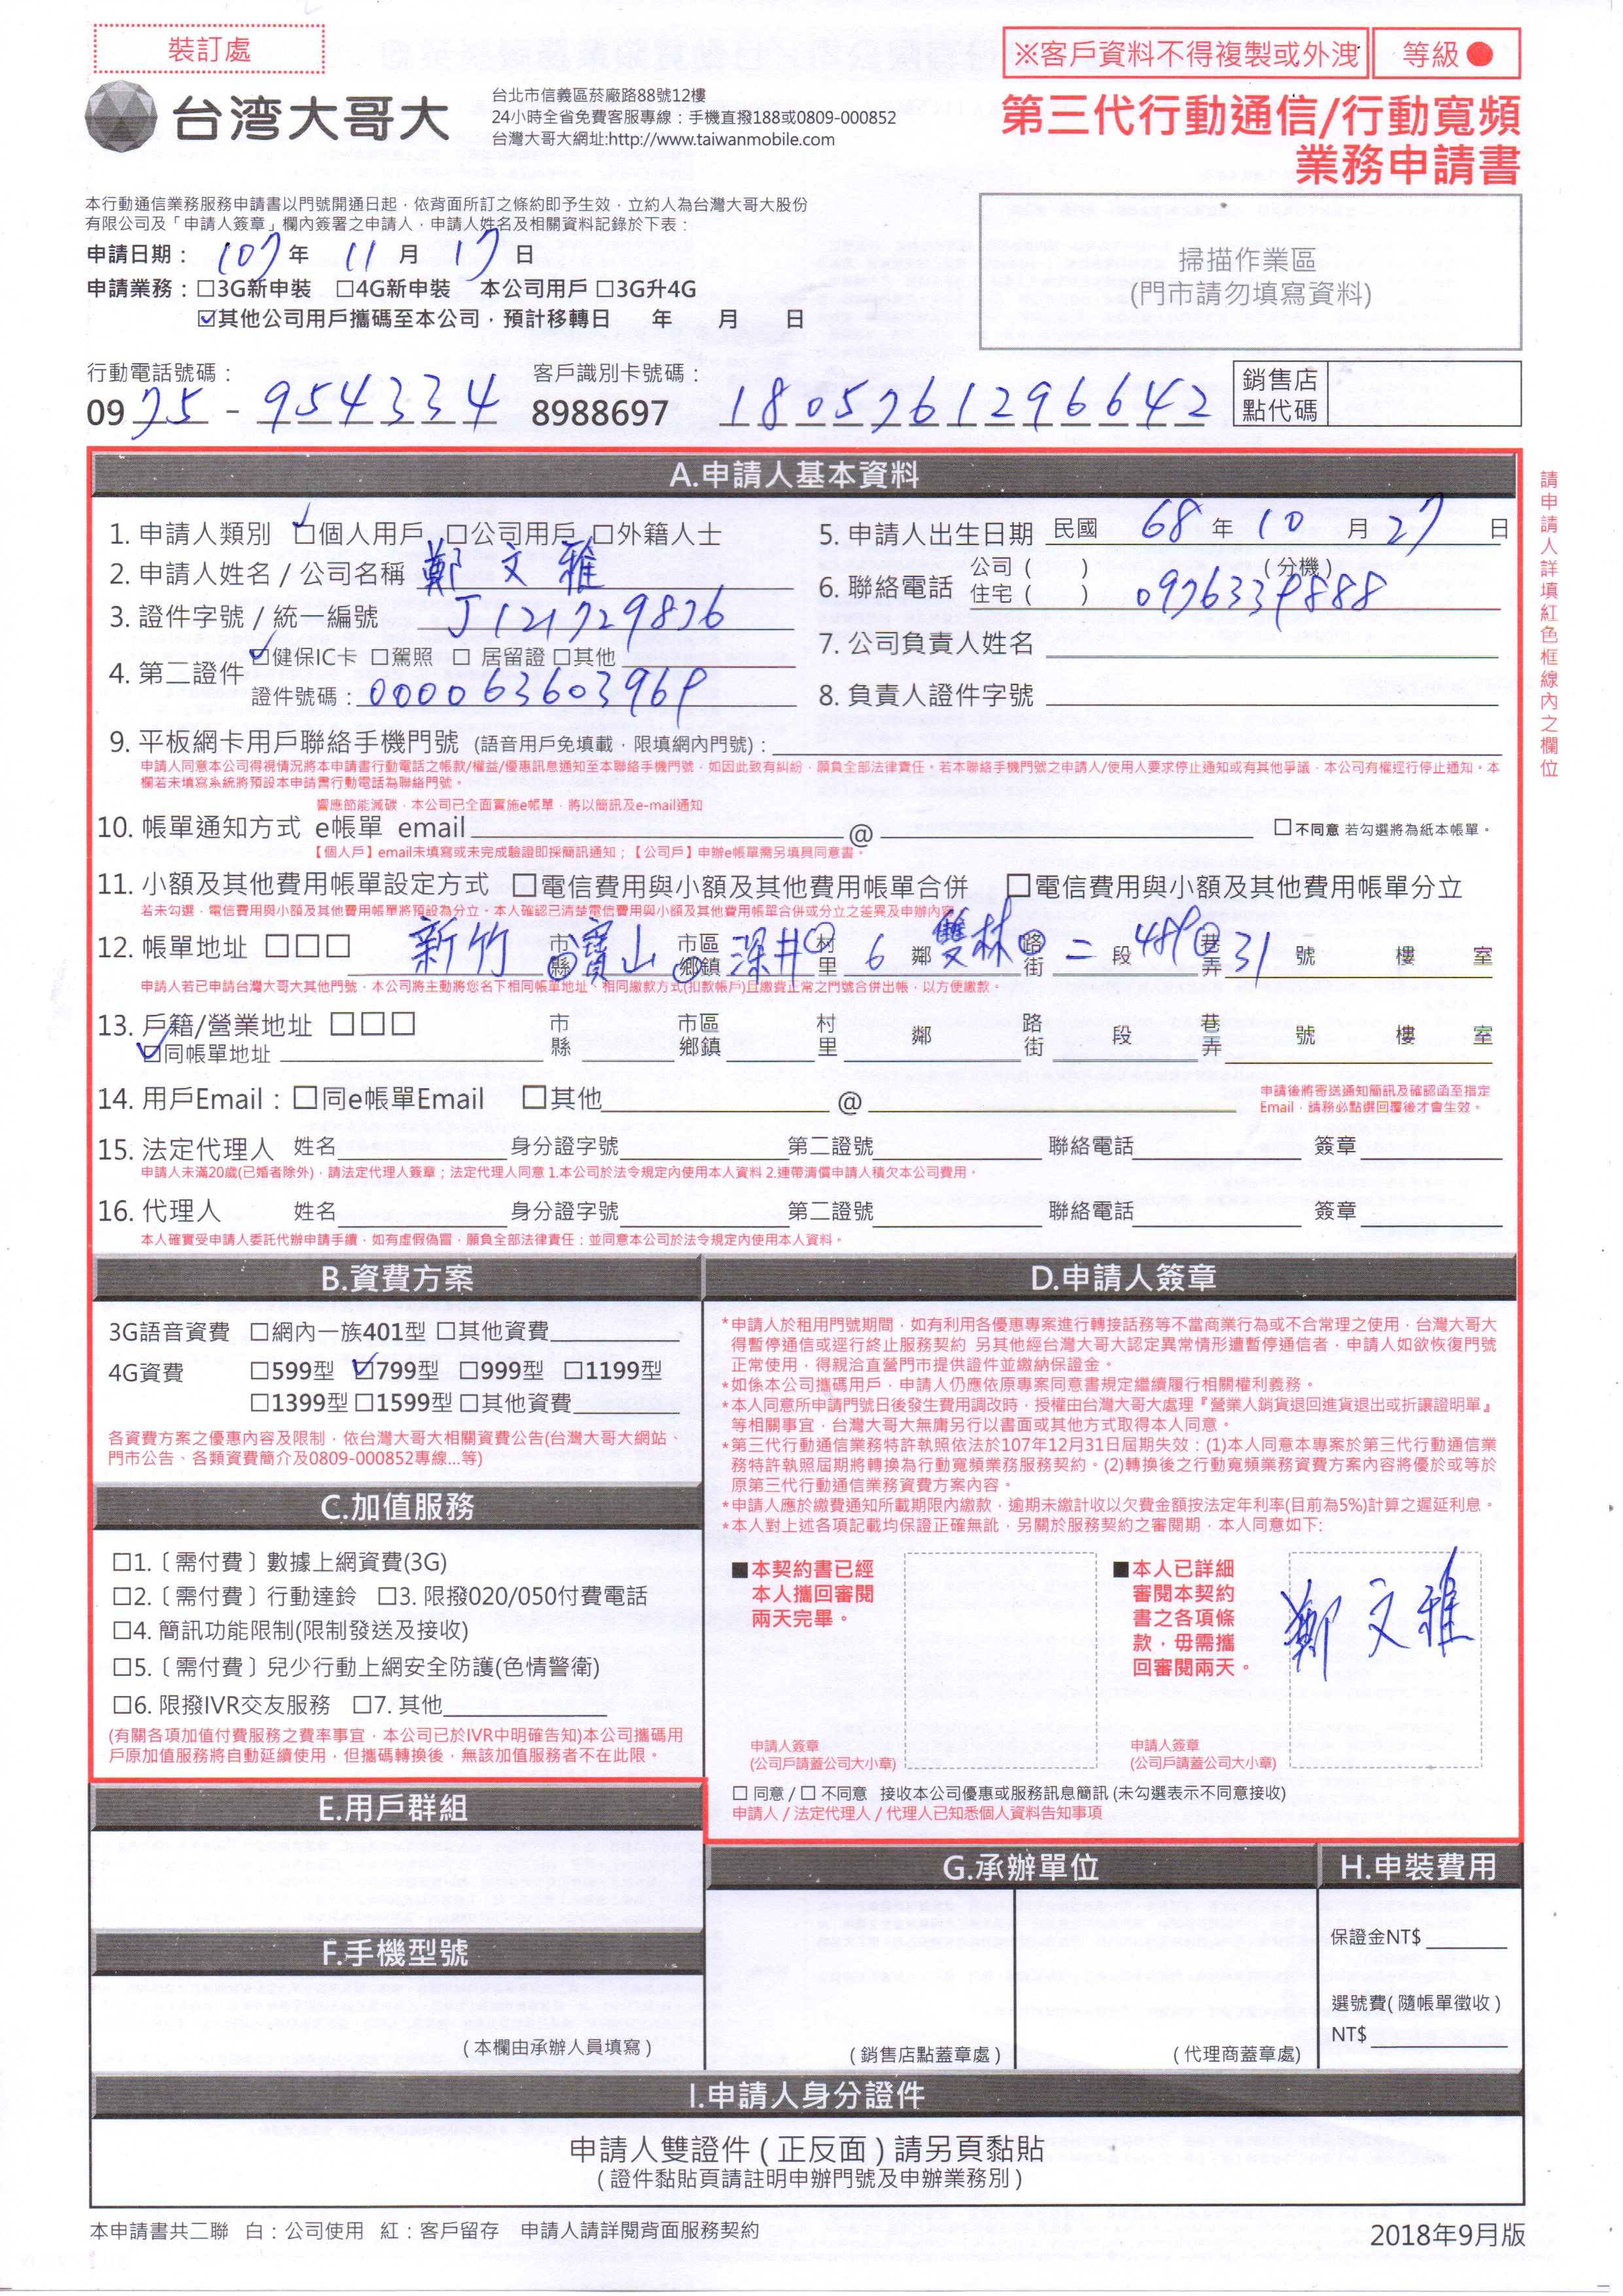 裝訂處
※客戶資料不得複製或外洩 等級●
台湾大哥大
台北市信義區菸廠路88號12樓
24小時全省免費客服專線：手機直撥188或0809-000852
台灣大哥大網址:http://www.taiwanmobile.com
第三代行動通信/行動寬頻
業務申請書
本行動通信業務服務申請書以門號開通日起，依背面所訂之條約即予生效，立約人為台灣大哥大股份
有限公司及「申請人簽章」欄內簽署之申請人，申請人姓名及相關資料記錄於下表：
申請日期： 107 年 11 月 17 日
申請業務：□3G新申裝 □4G新申裝 本公司用戶 □3G升4G
☑其他公司用戶攜碼至本公司，預計移轉日 年 月 日
掃描作業區
(門市請勿填寫資料)
行動電話號碼： 客戶識別卡號碼：
0975 - 954334 8988697 1805761296642
銷售店
點代碼
A.申請人基本資料
1. 申請人類別 ☑個人用戶 □公司用戶 □外籍人士
2. 申請人姓名 / 公司名稱 鄭文雅
3. 證件字號 / 統一編號 J121729876
4. 第二證件 ☑健保IC卡 □駕照 □ 居留證 □其他
證件號碼：000063603969
5. 申請人出生日期 民國 68 年 10 月 27 日
6. 聯絡電話 公司 ( ) (分機)
住宅 ( ) 0976339888
7. 公司負責人姓名
8. 負責人證件字號
請申請人詳填紅色框線內之欄位
9. 平板網卡用戶聯絡手機門號 (語音用戶免填載，限填網內門號)：
申請人同意本公司得視情況將本申請書行動電話之帳款/權益/優惠訊息通知至本聯絡手機門號，如因此致有糾紛，願負全部法律責任。若本聯絡手機門號之申請人/使用人要求停止通知或有其他爭議，本公司有權逕行停止通知。本
欄若未填寫系統將預設本申請書行動電話為聯絡門號。
響應節能減碳，本公司已全面實施e帳單，將以簡訊及e-mail通知
10. 帳單通知方式 e帳單 email @ □不同意 若勾選將為紙本帳單。
【個人戶】email未填寫或未完成驗證即採簡訊通知；【公司戶】申辦e帳單需另填具同意書。
11. 小額及其他費用帳單設定方式 □電信費用與小額及其他費用帳單合併 □電信費用與小額及其他費用帳單分立
若未勾選，電信費用與小額及其他費用帳單將預設為分立。本人確認已清楚電信費用與小額及其他費用帳單合併或分立之差異及申辦內容
12. 帳單地址 □□□ 新竹 市縣 寶山 市區鄉鎮 深井 村里 6 鄰 雙林 路街 二 段 489 巷弄 31 號 樓 室
申請人若已申請台灣大哥大其他門號，本公司將主動將您名下相同帳單地址、相同繳款方式(扣款帳戶)且繳費正常之門號合併出帳，以方便繳款。
13. 戶籍/營業地址 □□□ 市縣 市區鄉鎮 村里 鄰 路街 段 巷弄 號 樓 室
☑同帳單地址
14. 用戶Email：□同e帳單Email □其他 @
申請後將寄送通知簡訊及確認函至指定
Email，請務必點選回覆後才會生效。
15. 法定代理人 姓名 身分證字號 第二證號 聯絡電話 簽章
申請人未滿20歲(已婚者除外)，請法定代理人簽章；法定代理人同意 1.本公司於法令規定內使用本人資料 2.連帶清償申請人積欠本公司費用。
16. 代理人 姓名 身分證字號 第二證號 聯絡電話 簽章
本人確實受申請人委託代辦申請手續，如有虛假偽冒，願負全部法律責任；並同意本公司於法令規定內使用本人資料。
B.資費方案
3G語音資費 □網內一族401型 □其他資費
4G資費 □599型 ☑799型 □999型 □1199型
□1399型 □1599型 □其他資費
各資費方案之優惠內容及限制，依台灣大哥大相關資費公告(台灣大哥大網站、
門市公告、各類資費簡介及0809-000852專線...等)
C.加值服務
□1.〔需付費〕數據上網資費(3G)
□2.〔需付費〕行動達鈴 □3. 限撥020/050付費電話
□4. 簡訊功能限制(限制發送及接收)
□5.〔需付費〕兒少行動上網安全防護(色情警衛)
□6. 限撥IVR交友服務 □7. 其他
(有關各項加值付費服務之費率事宜，本公司已於IVR中明確告知)本公司攜碼用
戶原加值服務將自動延續使用，但攜碼轉換後，無該加值服務者不在此限。
D.申請人簽章
*申請人於租用門號期間，如有利用各優惠專案進行轉接話務等不當商業行為或不合常理之使用，台灣大哥大
得暫停通信或逕行終止服務契約 另其他經台灣大哥大認定異常情形遭暫停通信者，申請人如欲恢復門號
正常使用，得親洽直營門市提供證件並繳納保證金。
*如係本公司攜碼用戶，申請人仍應依原專案同意書規定繼續履行相關權利義務。
*本人同意所申請門號日後發生費用調改時，授權由台灣大哥大處理『營業人銷貨退回進貨退出或折讓證明單』
等相關事宜，台灣大哥大無庸另行以書面或其他方式取得本人同意。
*第三代行動通信業務特許執照依法於107年12月31日屆期失效：(1)本人同意本專案於第三代行動通信業
務特許執照屆期將轉換為行動寬頻業務服務契約。(2)轉換後之行動寬頻業務資費方案內容將優於或等於
原第三代行動通信業務資費方案內容。
*申請人應於繳費通知所載期限內繳款，逾期未繳計收以欠費金額按法定年利率(目前為5%)計算之遲延利息。
*本人對上述各項記載均保證正確無訛，另關於服務契約之審閱期，本人同意如下:
■本契約書已經
本人攜回審閱
兩天完畢。
申請人簽章
(公司戶請蓋公司大小章)
■本人已詳細
審閱本契約
書之各項條
款，毋需攜
回審閱兩天。
鄭文雅
申請人簽章
(公司戶請蓋公司大小章)
□ 同意 / □ 不同意 接收本公司優惠或服務訊息簡訊 (未勾選表示不同意接收)
申請人 / 法定代理人 / 代理人已知悉個人資料告知事項
E.用戶群組
F.手機型號
(本欄由承辦人員填寫)
G.承辦單位
(銷售店點蓋章處) (代理商蓋章處)
H.申裝費用
保證金NT$
選號費(隨帳單徵收)
NT$
I.申請人身分證件
申請人雙證件(正反面)請另頁黏貼
(證件黏貼頁請註明申辦門號及申辦業務別)
本申請書共二聯 白：公司使用 紅：客戶留存 申請人請詳閱背面服務契約
2018年9月版